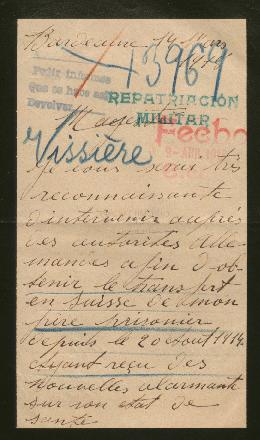 Bordeaux 14 Mars
13967
Pedir informes
Que se haga
Devolver
REPATRIACIÓN
MILITAR
Fecho
Vissière
Je vous serai très
reconnaissante
d'intervenir auprès
des autorités Alle-
mandes afin d'ob-
tenir le transport
en Suisse de mon
père prisonier
depuis le 20 Aout 1914.
Ayant reçu des
nouvelles alarmante
sur son état de
santé